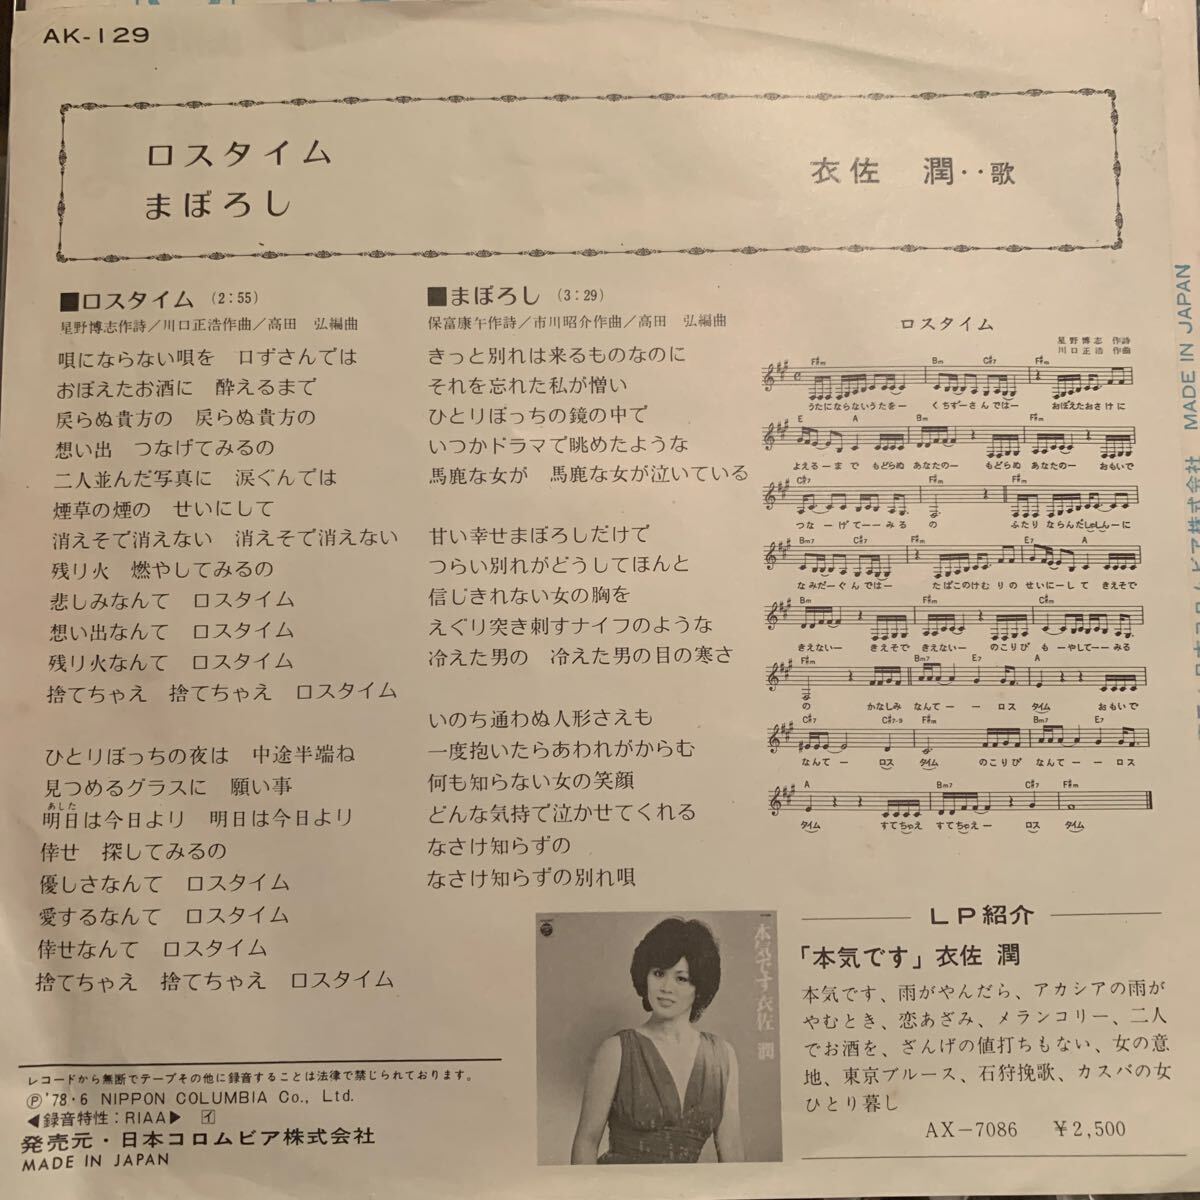 AK-129
ロスタイム
まぼろし
衣佐 潤‥歌
■ロスタイム (2:55)
星野博志作詩／川口正浩作曲／高田 弘編曲
唄にならない唄を 口ずさんでは
おぼえたお酒に 酔えるまで
戻らぬ貴方の 戻らぬ貴方の
想い出 つなげてみるの
二人並んだ写真に 涙ぐんでは
煙草の煙の せいにして
消えそで消えない 消えそで消えない
残り火 燃やしてみるの
悲しみなんて ロスタイム
想い出なんて ロスタイム
残り火なんて ロスタイム
捨てちゃえ 捨てちゃえ ロスタイム
ひとりぼっちの夜は 中途半端ね
見つめるグラスに 願い事
あした
明日は今日より 明日は今日より
倖せ 探してみるの
優しさなんて ロスタイム
愛するなんて ロスタイム
倖せなんて ロスタイム
捨てちゃえ 捨てちゃえ ロスタイム
■まぼろし (3:29)
保富康午作詩／市川昭介作曲／高田 弘編曲
きっと別れは来るものなのに
それを忘れた私が憎い
ひとりぼっちの鏡の中で
いつかドラマで眺めたような
馬鹿な女が 馬鹿な女が泣いている
甘い幸せまぼろしだけで
つらい別れがどうしてほんと
信じきれない女の胸を
えぐり突き刺すナイフのような
冷えた男の 冷えた男の目の寒さ
いのち通わぬ人形さえも
一度抱いたらあわれがからむ
何も知らない女の笑顔
どんな気持で泣かせてくれる
なさけ知らずの
なさけ知らずの別れ唄
ロスタイム
星野博志 作詩
川口正浩 作曲
F♯m Bm C♯7 F♯m
うたにならないうたをー くちずーさんではー おぼえたおさけに
E A Bm F♯m
よえるーまで もどらぬ あなたのー もどらぬ あなたのー おもいで
C♯7 F♯m
つなーげてーーみる の ふたり ならんだしゃしんーに
Bm7 C♯7 F♯m E7 A
なみだーぐんではー たばこのけむ りの せいにーして きえそで
Bm F♯m C♯m
きえないー きえそで きえないー のこりび もーやしてーーみる
F♯m Bm7 E7 A
の かなしみ なんてーーロス タイム おもいで
C♯7 C♯7-9 F♯m Bm7 E7
なんてー ロス タイム のこりび なんてーーロス
A Bm7 C♯7 F♯m
タイム すてちゃえ すてちゃえー ロス タイム
本気です 衣佐 潤
LP紹介
「本気です」衣佐 潤
本気です、雨がやんだら、アカシアの雨が
やむとき、恋あざみ、メランコリー、二人
でお酒を、ざんげの値打ちもない、女の意
地、東京ブルース、石狩挽歌、カスバの女
ひとり暮し
AX-7086 ¥2,500
レコードから無断でテープその他に録音することは法律で禁じられております。
Ⓟ'78・6 NIPPON COLUMBIA Co., Ltd.
◀録音特性：RIAA▶ イ
発売元・日本コロムビア株式会社
MADE IN JAPAN
ビア株式会社 MADE IN JAPAN